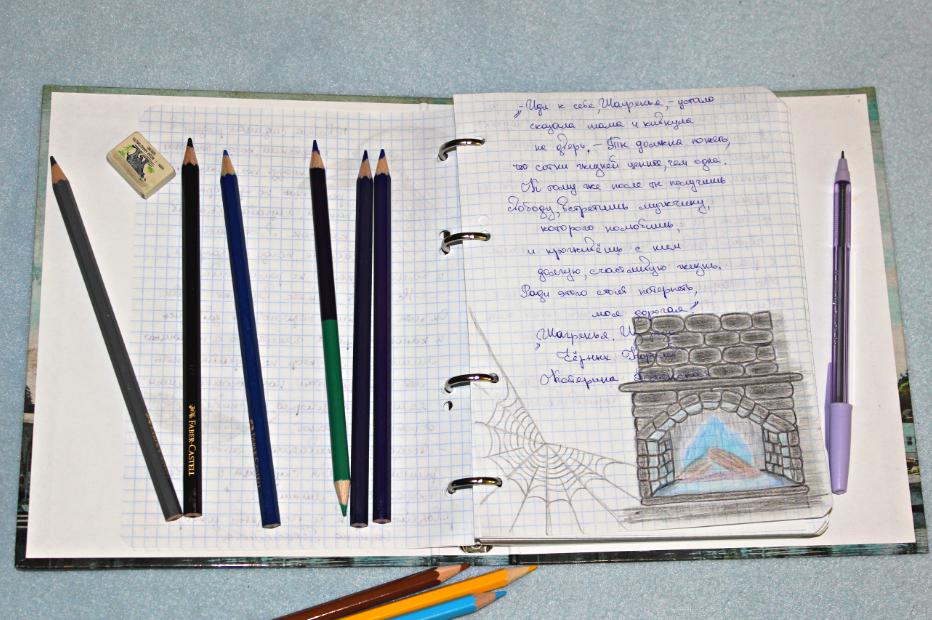 „-Иди к себе, Шагренья, - устало
сказала мама и кивнула
на дверь. - Ты должна понять,
что сотни жизней ценнее, чем одна.
К тому же после ты получишь
свободу, встретишь мужчину,
которого полюбишь,
и проживёшь с ним
долгую, счастливую жизнь.
Ради этого стоит потерпеть,
моя дорогая"
„Шагренья.
Чёрных
Катерина
FABER-CASTELL